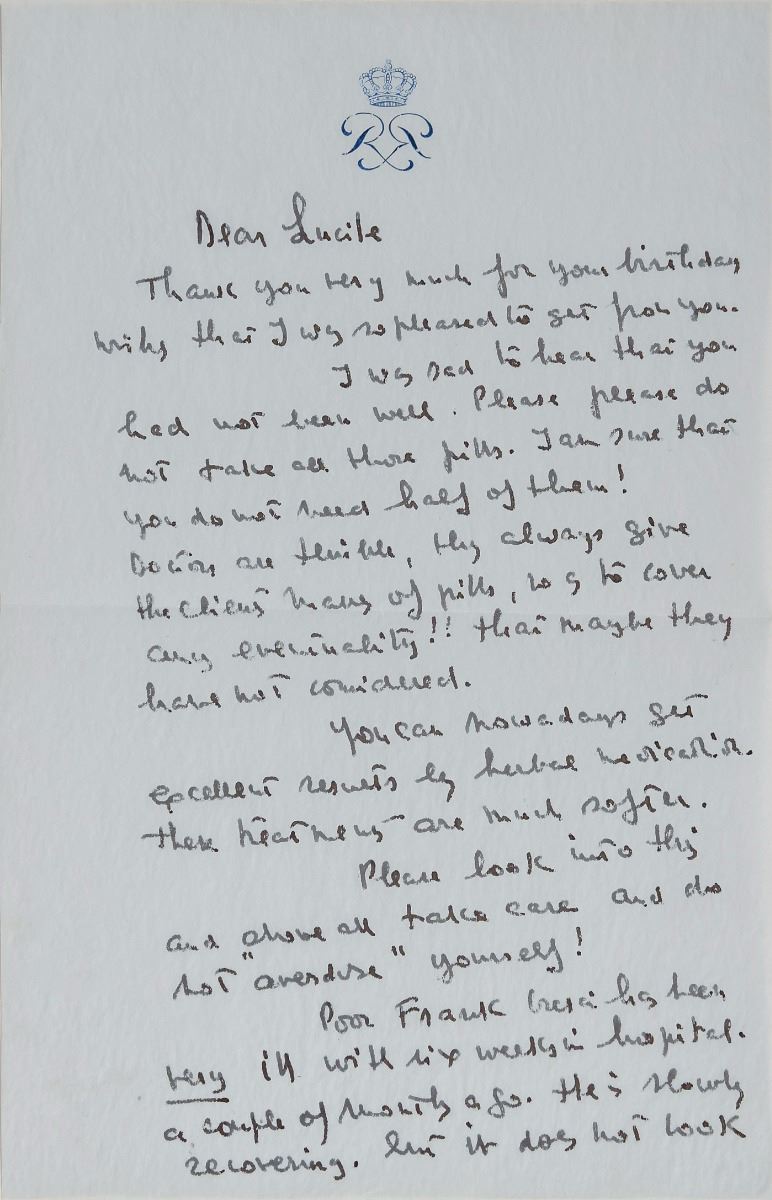 RR
Dear Lucile
Thank you very much for your birthday
wishes that I was so pleased to get from you.
I was sad to hear that you
had not been well. Please please do
not take all those pills. I am sure that
you do not need half of them!
Doctors are terrible, they always give
the client many of pills, so as to cover
any eventuality!! that maybe they
have not considered.
You can nowadays get
excellent results by herbal medication.
These treatments are much softer.
Please look into this
and above all take care and do
not "overdose" yourself!
Poor Frank has been
very ill with six weeks in hospital.
a couple of months ago. He is slowly
recovering. but it does not look